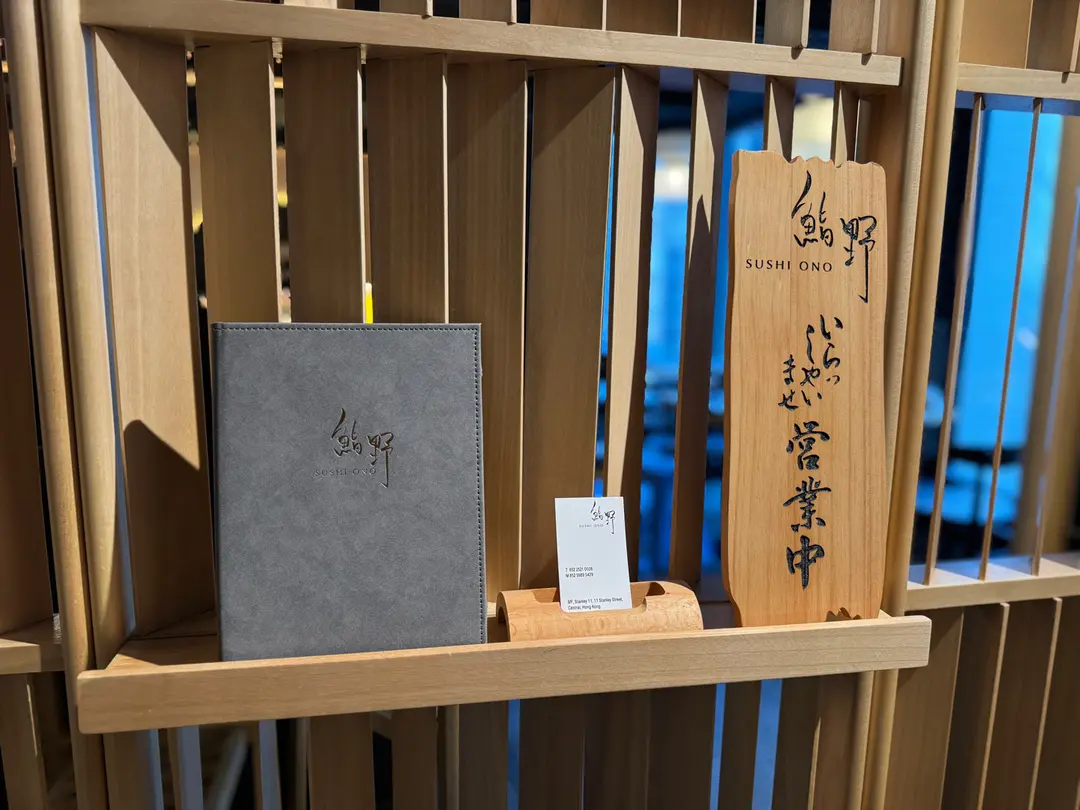 鮨野
SUSHI ONO
鮨野
SUSHI ONO
Stanley 11, 11 Stanley Street,
Central, Hong Kong
鮨野
SUSHI ONO
いらっ
しゃい
ませ
営業中